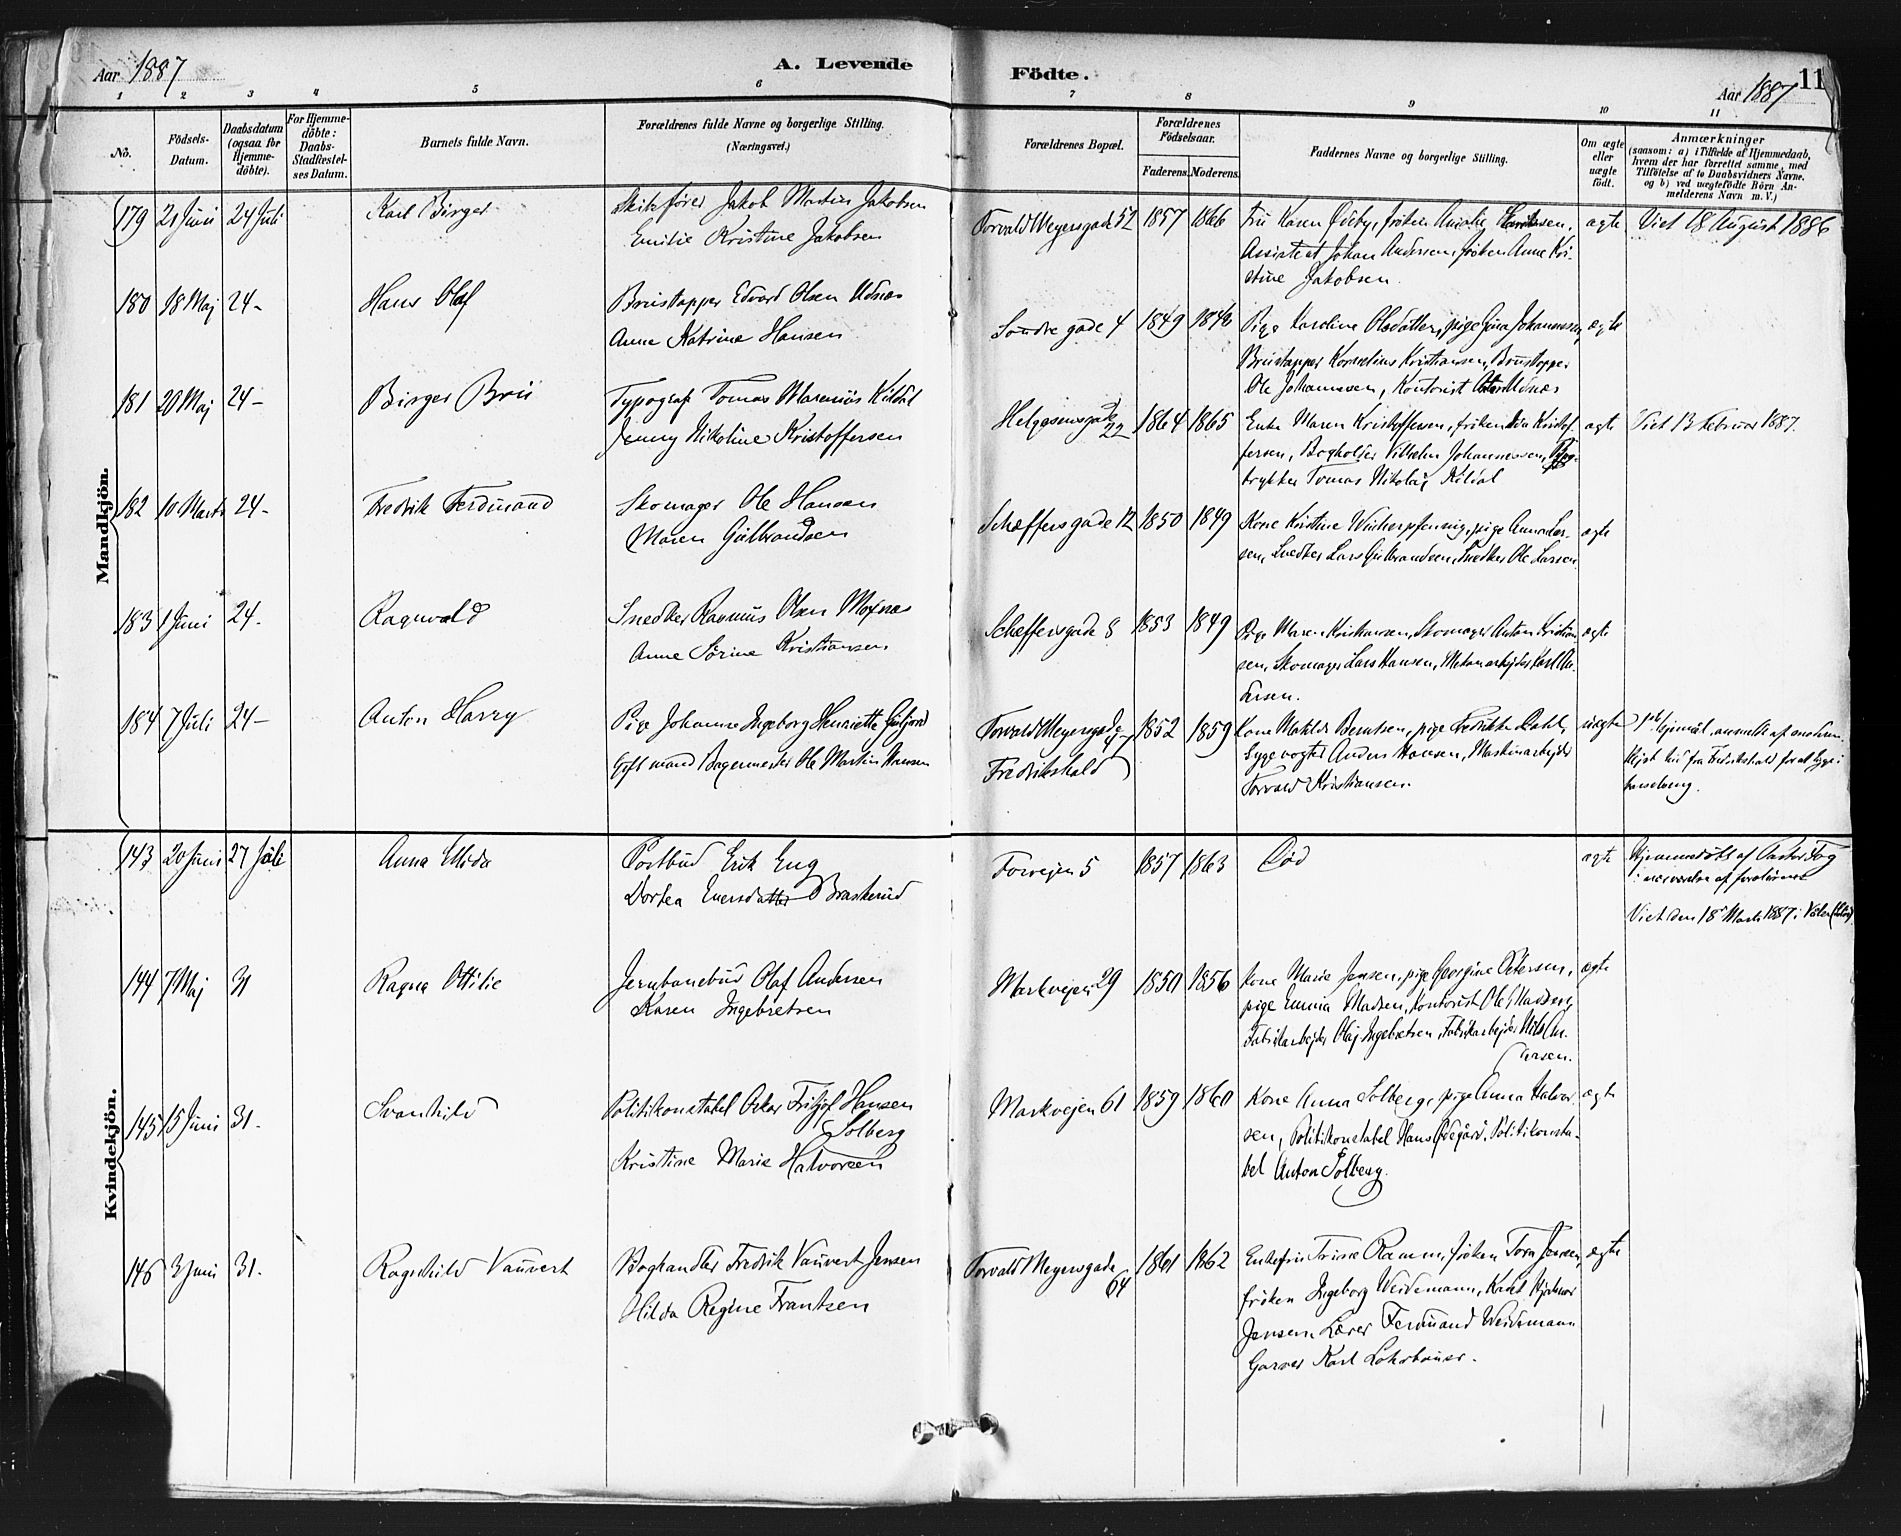 Aar 1887
A. Levende
Födte.
11
Aar 1887
1 2 3 4 5 6 7 8 9 10 11
No.
Födsels-Datum.
Daabsdatum (ogsaa for Hjemme-döbte).
For Hjemme-döbte: Daabs-Stadfæstel-ses Datum.
Barnets fulde Navn.
Forældrenes fulde Navne og borgerlige Stilling. (Næringsvei.)
Forældrenes Bopæl.
Forældrenes Födselsaar.
Faderens. Moderens.
Faddernes Navne og borgerlige Stilling.
Om ægte eller uægte födt.
Anmærkninger
(saasom: a) i Tilfælde af Hjemmedaab, hvem der har forrettet samme, med Tilföielse af to Daabsvidners Navne. og b) ved uægtefödte Börn Anmelderens Navn m. V.)
Mandkjön.
179 21 Juni 24 Juli Karl Birger
Jakob Martin Jakobsen
Emilie Kristine Jakobsen
Torvald Meyersgade 52 1857 1866
Assistent Johan Andersen, fröken Anne Kri-
stine Jakobsen
ægte Viet 18 August 1886
180 18 Maj 24- Hans Olaf
Brustapper Edvard Olsen Udnæs
Anne Katrine Hansen
Söndre gade 4 1849 1846
Pige Karoline Olsdatter, pige Gina Johannessen,
Brustapper Kornelius Kristiansen, Brustapper
Ole Johannesen, Kontorist Udnæs
ægte
181 20 Maj 24- Birger Brü
Typograf Tomas Marenius Kildal
Jenny Nikoline Kristoffersen
Helgesensgade 22 1864 1865
Enke Maren Kristoffersen, fröken Kristof-
fersen, Bogholder Vilhelm Johannessen, Bog-
trykker Tomas Nikolaj Kildal
ægte Viet 13 Februar 1887.
182 10 Marts 24- Fredrik Ferdinand
Skomager Ole Hansen
Maren Gulbrandsen
Scheffersgade 12 1850 1849
Kone Kristine Wicherpfenning, pige Anna Lar-
sen, Snedker Lars Gulbrandsen, Snedker Ole Larsen
ægte
183 1 Juni 24- Ragnvald
Snedker Rasmus Olsen Moxnæs
Anne Sörine Kristiansen
Scheffersgade 8 1853 1849
Pige Maren Kristiansen, Skomager Anton Kristian-
sen, Skomager Lars Hansen, Karl An-
dersen.
ægte
184 7 Juli 24- Anton Harry
Pige Johanne Ingeborg Henriette
Gift mand Bagermester Ole Martin Hansen
Torvald Meyersgade
Fredrikshald
1852 1859
Kone Matilde Berntsen, pige Fredrikke Dahl,
Sygevogter Anders Hansen, Maskinarbejder
Torvald Kristiansen.
uægte
fra Fredrikshald for at ligge i
barselseng.
Kvindekjön.
143 20 Juni 27 Juli Anna Elida
Postbud Erik Eng
Dortea Evensdatter Braskerud
Torvejen 5 1857 1863 Död ægte
Hjemmedöbt af Pastor Fog
i nærværelse af forældrene
Viet den 18de Marts 1887 i
144 7 Maj 31 Ragna Ottilie
Jernbanebud Olaf Andersen
Karen Ingebretsen
Markvejen 29 1850 1856
Kone Marie Jensen, pige Georgine Petersen,
pige Emma Madsen, Kontorist Ole Madsen,
Fabrikarbejder Olaf Ingebretsen, Fabrikarbejder Nils An-
dersen.
ægte
145 15 Juni 31. Svanhild
Politikonstabel Oskar Fritjof Hansen
Solberg
Kristine Marie Halvorsen
Markvejen 61 1859 1860
Kone Anna Solberg, pige Anna Halvor-
sen, Politikonstabel Hans Ödegård, Politikonsta-
bel Anton Solberg.
ægte
146 3 Juni 31. Ragnhild Vauvert
Boghandler Fredrik Vauvert Jensen
Hilda Regine Frantsen
Torvald Meyersgade
64
1861 1862
Enkefru Trine Ramm, fröken Tora Jensen,
fröken Ingeborg Weidemann, Hjalmar
Jensen, Lærer Ferdinand Weidemann
Garver Karl Lohrbauer.
ægte